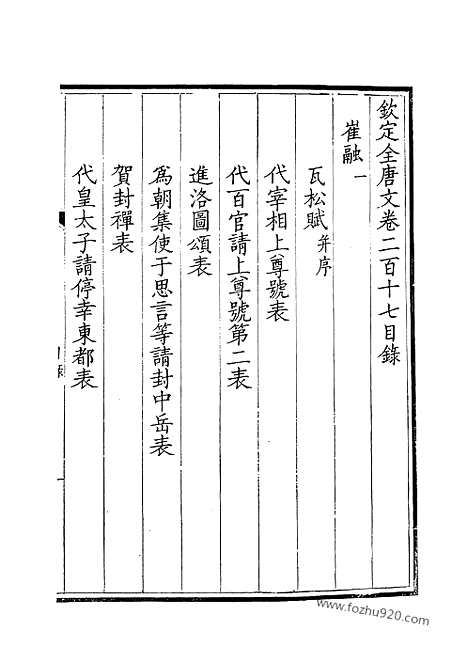 欽定全唐文卷二百十七目錄
崔融一
瓦松賦并序
代宰相上尊號表
代百官請上尊號第二表
進洛圖頌表
爲朝集使于思言等請封中岳表
賀封禪表
代皇太子請停幸東都表
www.fozhu920.com